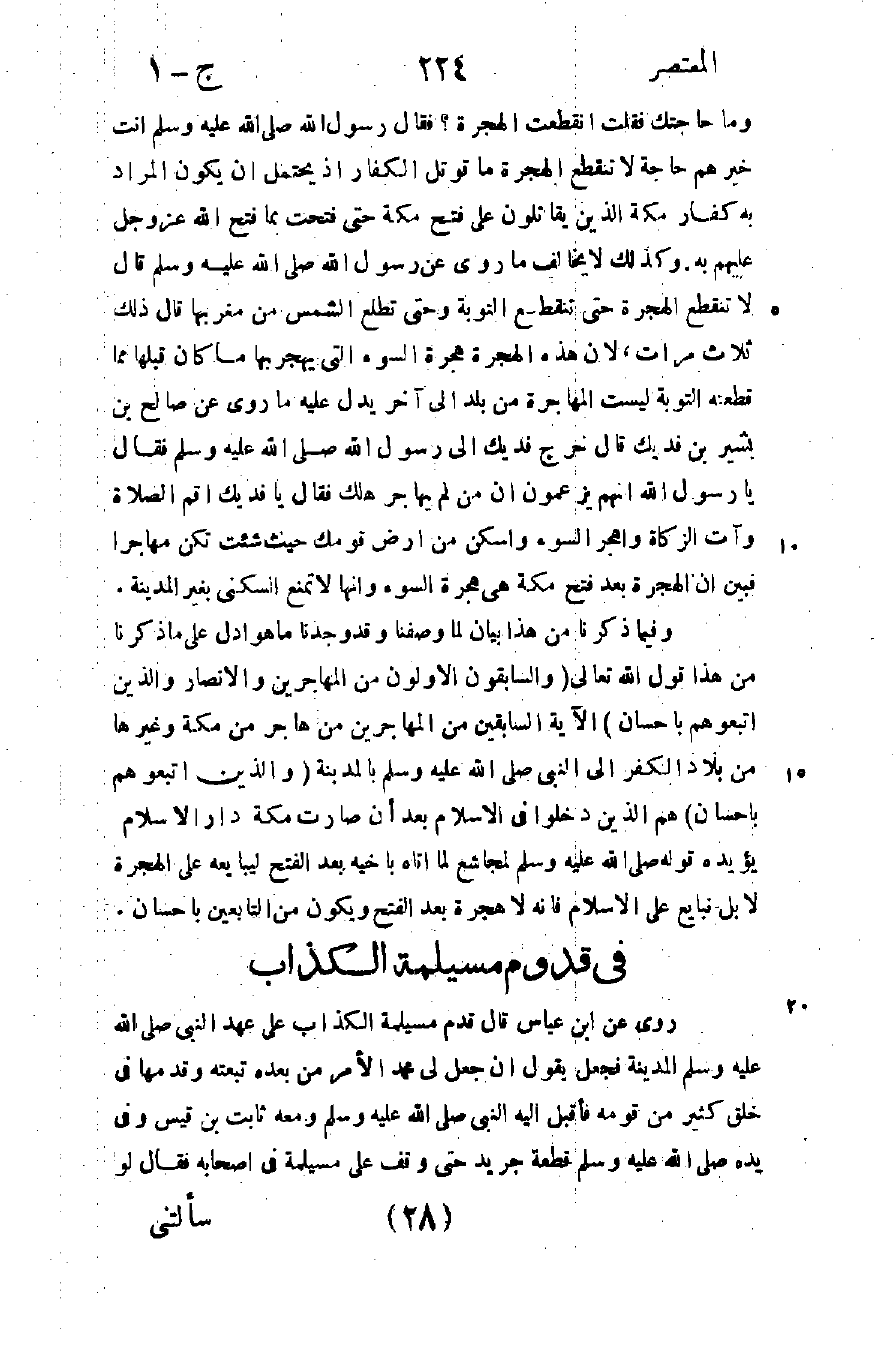 المعتصر ٢٢٤ ج – ١
وما حاجتك فقلت انقطعت الهجرة ؟ فقال رسول الله صلى الله عليه وسلم انت
خيرهم حاجة لا تنقطع الهجرة ما قوتل الكفار اذ يحتمل ان يكون المراد
به كفار مكة الذين يقاتلون على فتح مكة حتى فتحت بما فتح الله عزوجل
عليهم به. وكذلك لا يخالف ما روى عن رسول الله صلى الله عليه وسلم قال
لا تنقطع الهجرة حتى تنقطع التوبة وحتى تطلع الشمس من مغربها قال ذلك ٥
ثلاث مرات، لان هذه الهجرة هجرة السوء التى يهجر بها ما كان قبلها مما
قطعته التوبة ليست المهاجرة من بلد الى آخر يدل عليه ما روى عن صالح بن
بشير بن فديك قال خرج فديك الى رسول الله صلى الله عليه وسلم فقال
يا رسول الله انهم يزعمون ان من لم يهاجر هلك فقال يا فديك اقم الصلاة
وآت الزكاة واهجر السوء واسكن من ارض قومك حيث شئت تكن مهاجرا ١٠
فبين ان الهجرة بعد فتح مكة هى هجرة السوء وانها لا تمنع السكنى بغير المدينة .
وفيما ذكرنا من هذا بيان لما وصفنا وقد وجدنا ما هو ادل على ما ذكرنا
من هذا قول الله تعالى (والسابقون الاولون من المهاجرين والانصار والذين
اتبعوهم باحسان) الآية السابقين من المهاجرين من هاجر من مكة وغيرها
من بلاد الكفر الى النبى صلى الله عليه وسلم بالمدينة (والذين اتبعوهم ١٥
باحسان) هم الذين دخلوا فى الاسلام بعد أن صارت مكة دار الاسلام
يؤيده قوله صلى الله عليه وسلم لمجاشع لما اتاه باخيه بعد الفتح ليبايعه على الهجرة
لا بل نبايع على الاسلام فانه لا هجرة بعد الفتح ويكون من التابعين باحسان .
فى قدوم مسيلمة الكذاب
روى عن ابن عباس قال قدم مسيلمة الكذاب على عهد النبى صلى الله ٢٠
عليه وسلم المدينة فجعل يقول ان جعل لى محمد الأمر من بعده تبعته وقدمها فى
خلق كثير من قومه فأقبل اليه النبى صلى الله عليه وسلم ومعه ثابت بن قيس وفى
يده صلى الله عليه وسلم قطعة جريد حتى وقف على مسيلمة فى اصحابه فقال لو
(٢٨) سألتنى